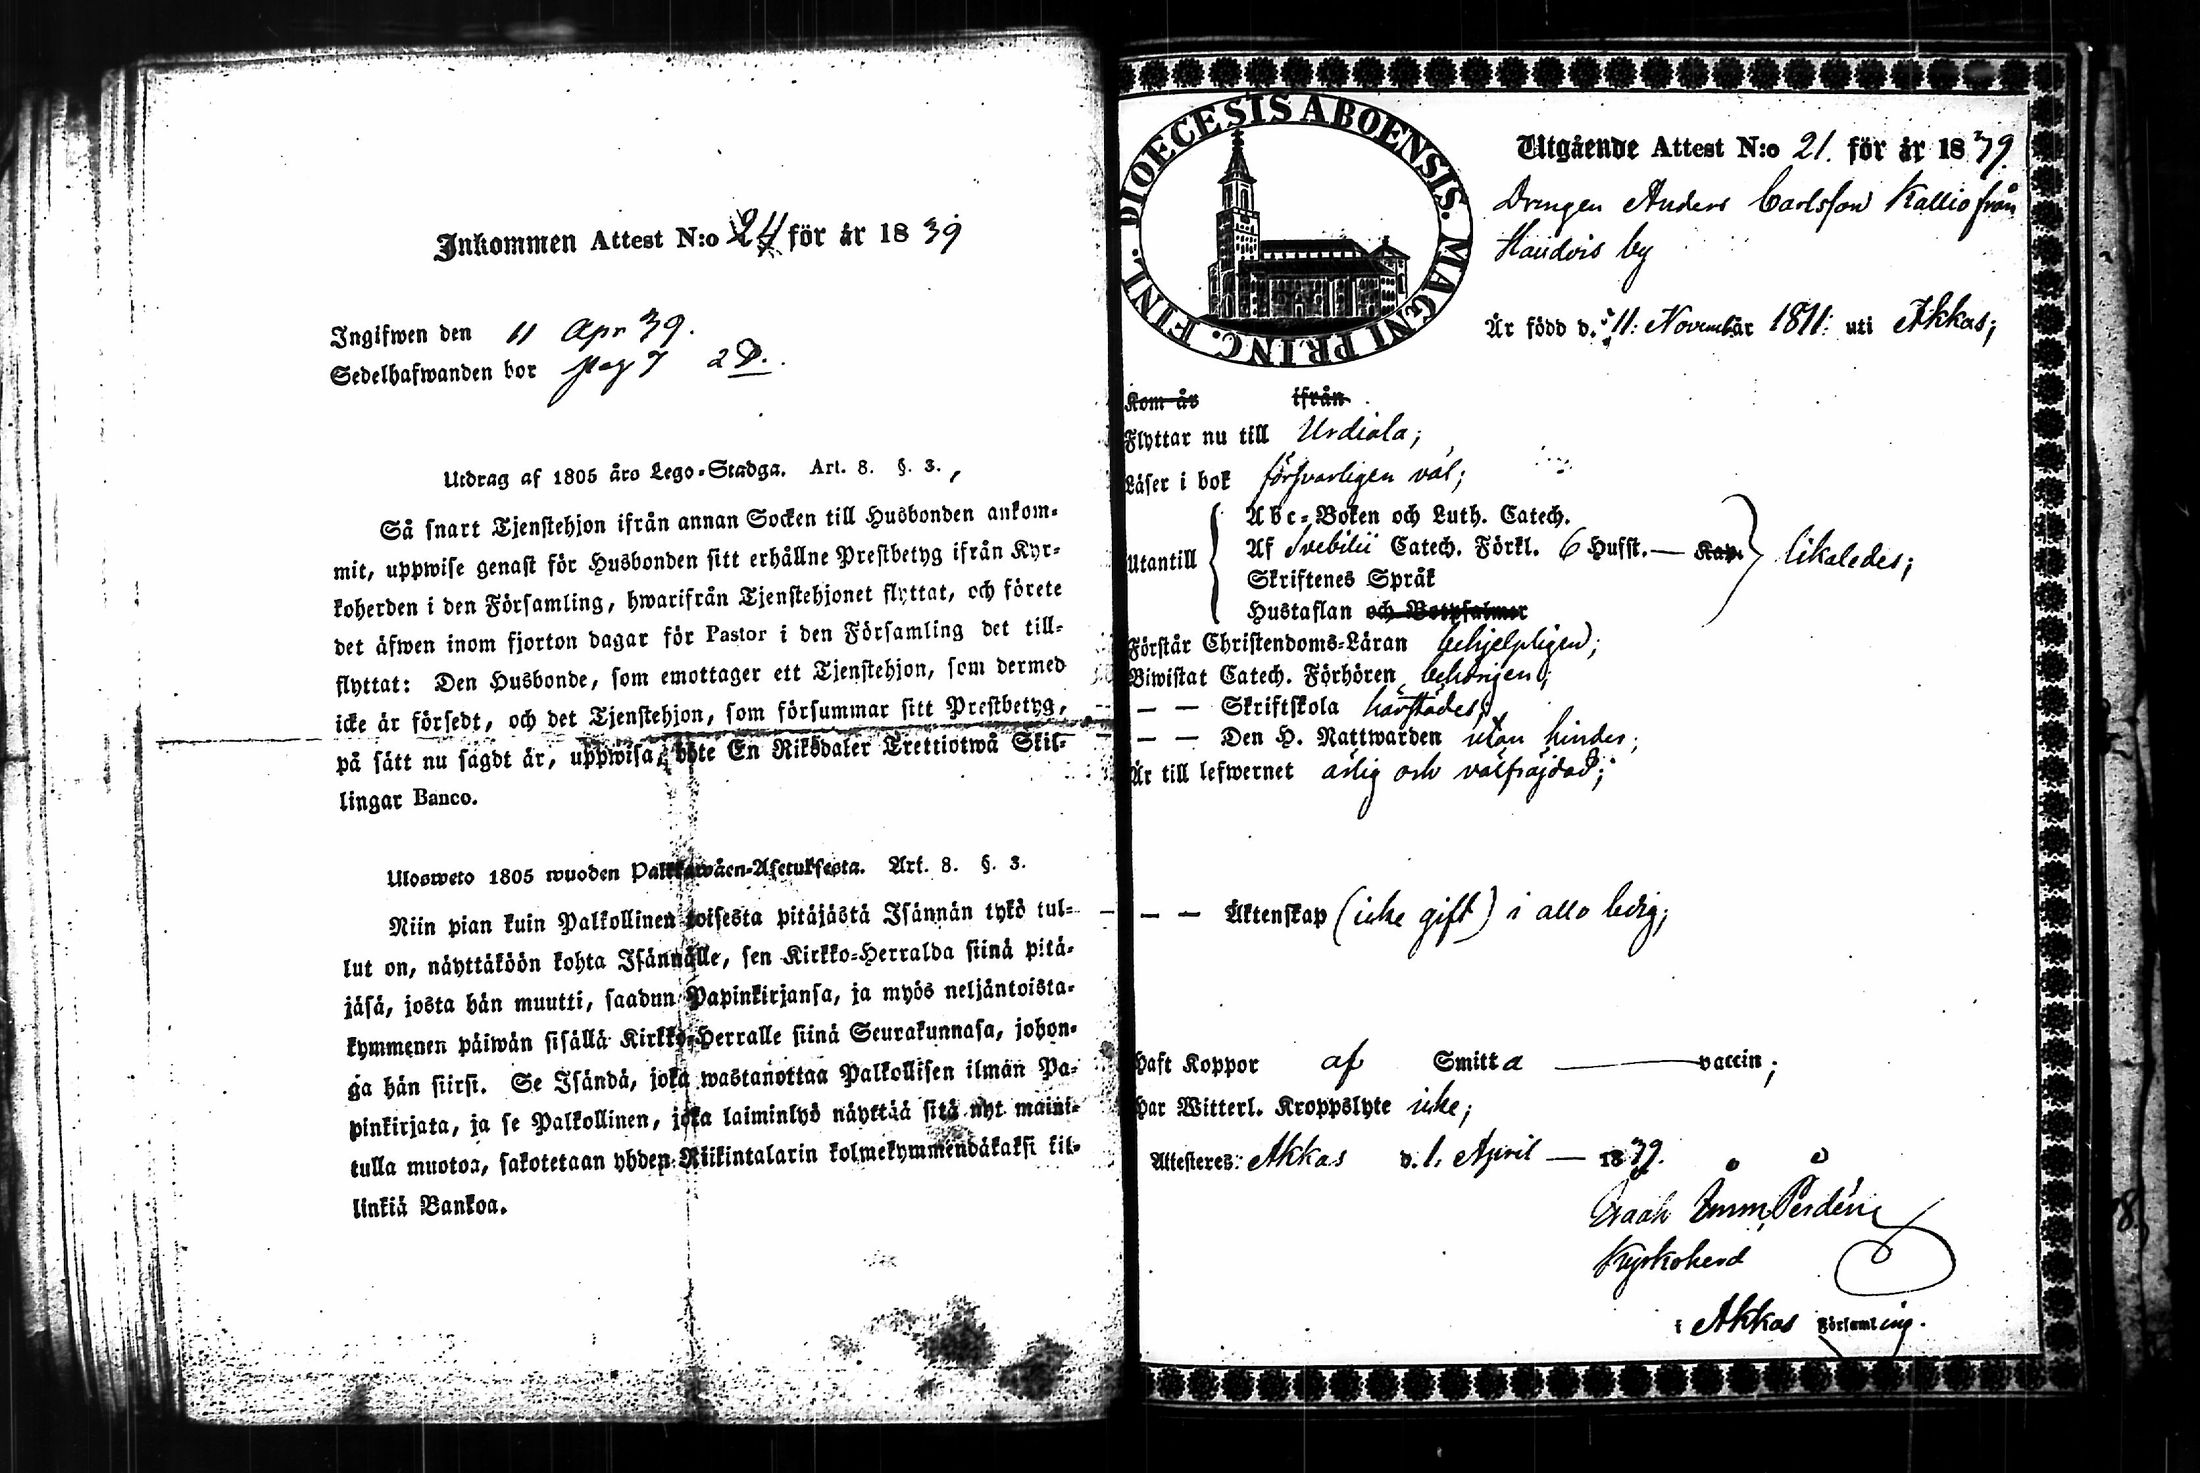 Inkommen Attest N:o 24 för år 1839
Ingifwen den 11 Apr 39.
Sedelhafwanden bor pag 7 2
Utdrag af 1805 års Lego-Stadga. Art. 8. §. 3.
Så snart Tjenstehjon ifrån annan Socken till Husbonden ankom-
mit, uppwise genast för Husbonden sitt erhållne Prestbetyg ifrån Kyr-
koherden i den Församling, hwarifrån Tjenstehjonet flyttat, och förete
det äfwen inom fjorton dagar för Pastor i den Församling det till-
flyttat: Den Husbonde, som emottager ett Tjenstehjon, som dermed
icke är försedt, och det Tjenstehjon, som försummar sitt Prestbetyg,
på sätt nu sagdt är, uppwisa, böte En Riksdaler Trettiotwå Skil-
lingar Banco.
Ulosweto 1805 wuoden Palkkawäen-Asetuksesta. Art. 8. §. 3.
Niin pian kuin Palkollinen toisesta pitäjästä Isännän tykö tul-
lut on, näyttäköön kohta Isännälle, sen Kirkko-Herralda siinä pitä-
jäsä, josta hän muutti, saadun Papinkirjansa, ja myös neljäntoista-
kymmenen päiwän sisällä Kirkko-Herralle siinä Seurakunnasa, johon-
ga hän siirsi. Se Isändä, joka wastanottaa Palkollisen ilman Pa-
pinkirjata, ja se Palkollinen, joka laiminlyö näyttää sitä nyt maini-
tulla muotoa, sakotetaan yhden Riikintalarin kolmekymmendäkaksi kil-
linkiä Bankoa.
DIOECESIS ABOENSIS. MAGNI PRINC. FINL.
Utgående Attest N:o 21. för år 1839
Drengen Anders Carlsson Kallio från
Haudois by
Är född d. 11: November 1811: uti Akkas;
Kom år ifrån
Flyttar nu till Urdiala;
Läser i bok försvarligen väl;
Utantill
Abc-Boken och Luth. Catech.
Af Svebilii Catech. Förkl. 6 Hufst. — Kap.
Skriftenes Språk
Hustaflan och Botpsalmer
likaledes;
Förstår Christendoms-Läran behjelpligen;
Biwistat Catech. Förhören behörigen;
— — Skriftskola härstädes;
— — Den H. Nattwarden utan hinder;
Är till lefwernet ärlig och välfräjdad;
— — Äktenskap (icke gift) i allo ledig;
Haft Koppor af Smitta — vaccin;
Har Witterl. Kroppslyte icke;
Attesteres: Akkas d. 1. April — 1839.
Isaak Emm. Perdén
Kyrkoherd
i Akkas Församling.